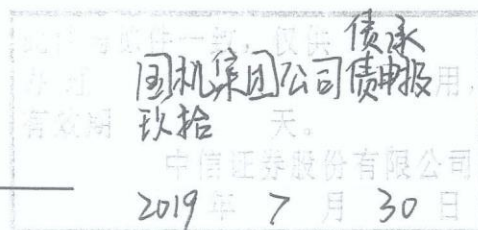 此件与原件一致，仅供债承
办理国机集团公司债申报用，
有效期玖拾天。
中信证券股份有限公司
2019年7月30日